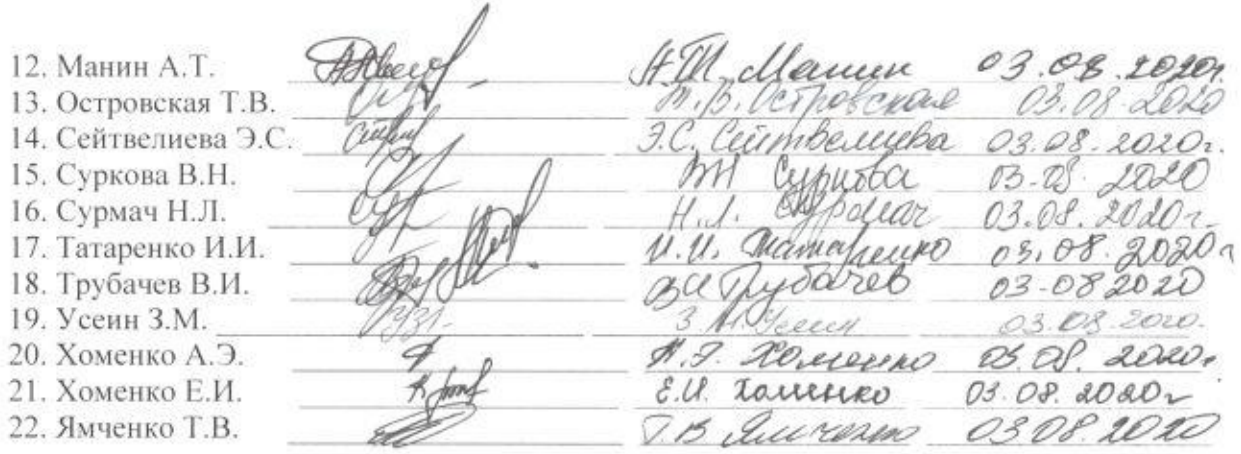 12. Манин А.Т. А.Т. Манин 03.08.2020г.
13. Островская Т.В. Т.В. Островская 03.08.2020
14. Сейтвелиева Э.С. Э.С. Сейтвелиева 03.08.2020г.
15. Суркова В.Н. ВН Суркова 03.08.2020
16. Сурмач Н.Л. Н.Л. Сурмач 03.08.2020г.
17. Татаренко И.И. И.И. Татаренко 03.08.2020г
18. Трубачев В.И. ВИ Трубачев 03-08 2020
19. Усеин З.М. З.М. Усеин 03.08.2020.
20. Хоменко А.Э. А.Э. Хоменко 03.08.2020г
21. Хоменко Е.И. Е.И. Хоменко 03.08.2020г
22. Ямченко Т.В. Т.В Ямченко 03 08.2020